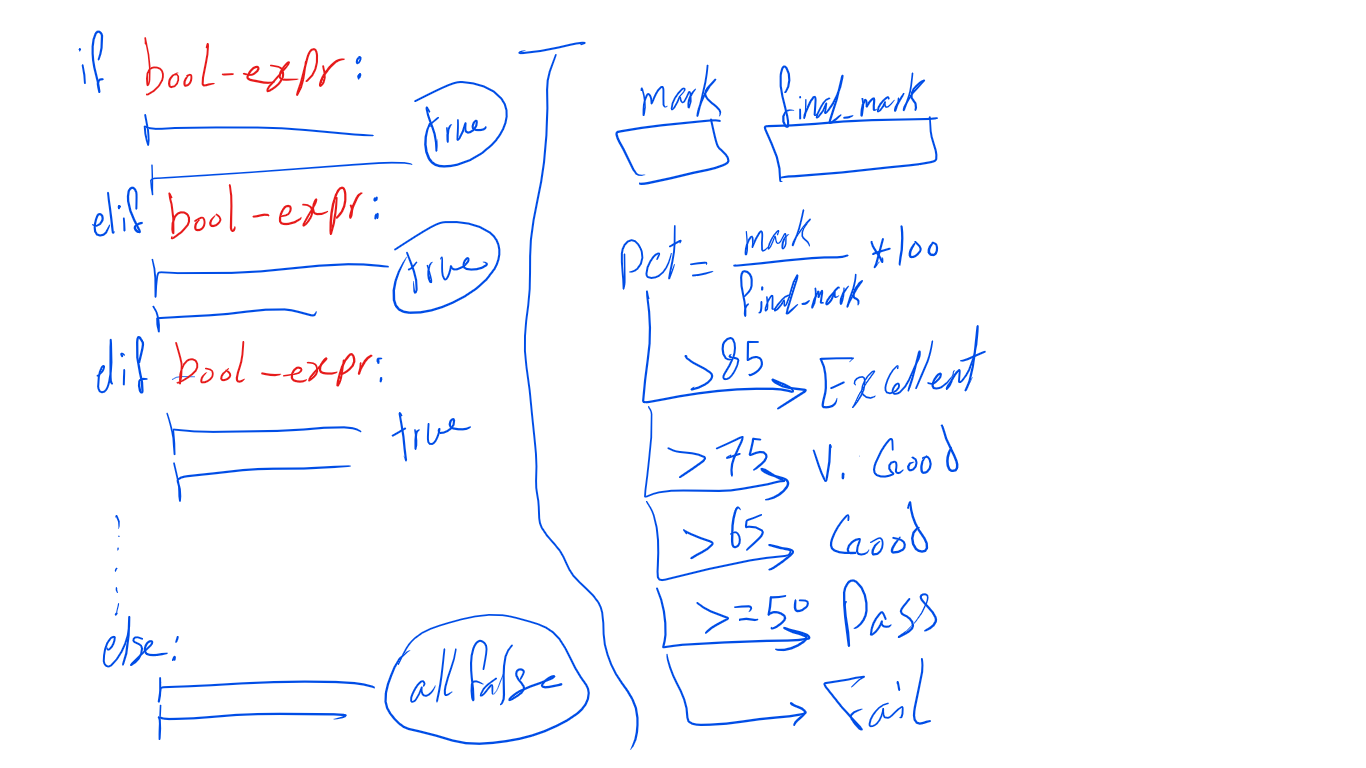 if bool-expr:
true
elif bool-expr:
true
elif bool-expr:
true
else:
all false
mark final_mark
Pct = mark / final_mark * 100
>85 Excellent
>75 V. Good
>65 Good
>=50 Pass
Fail